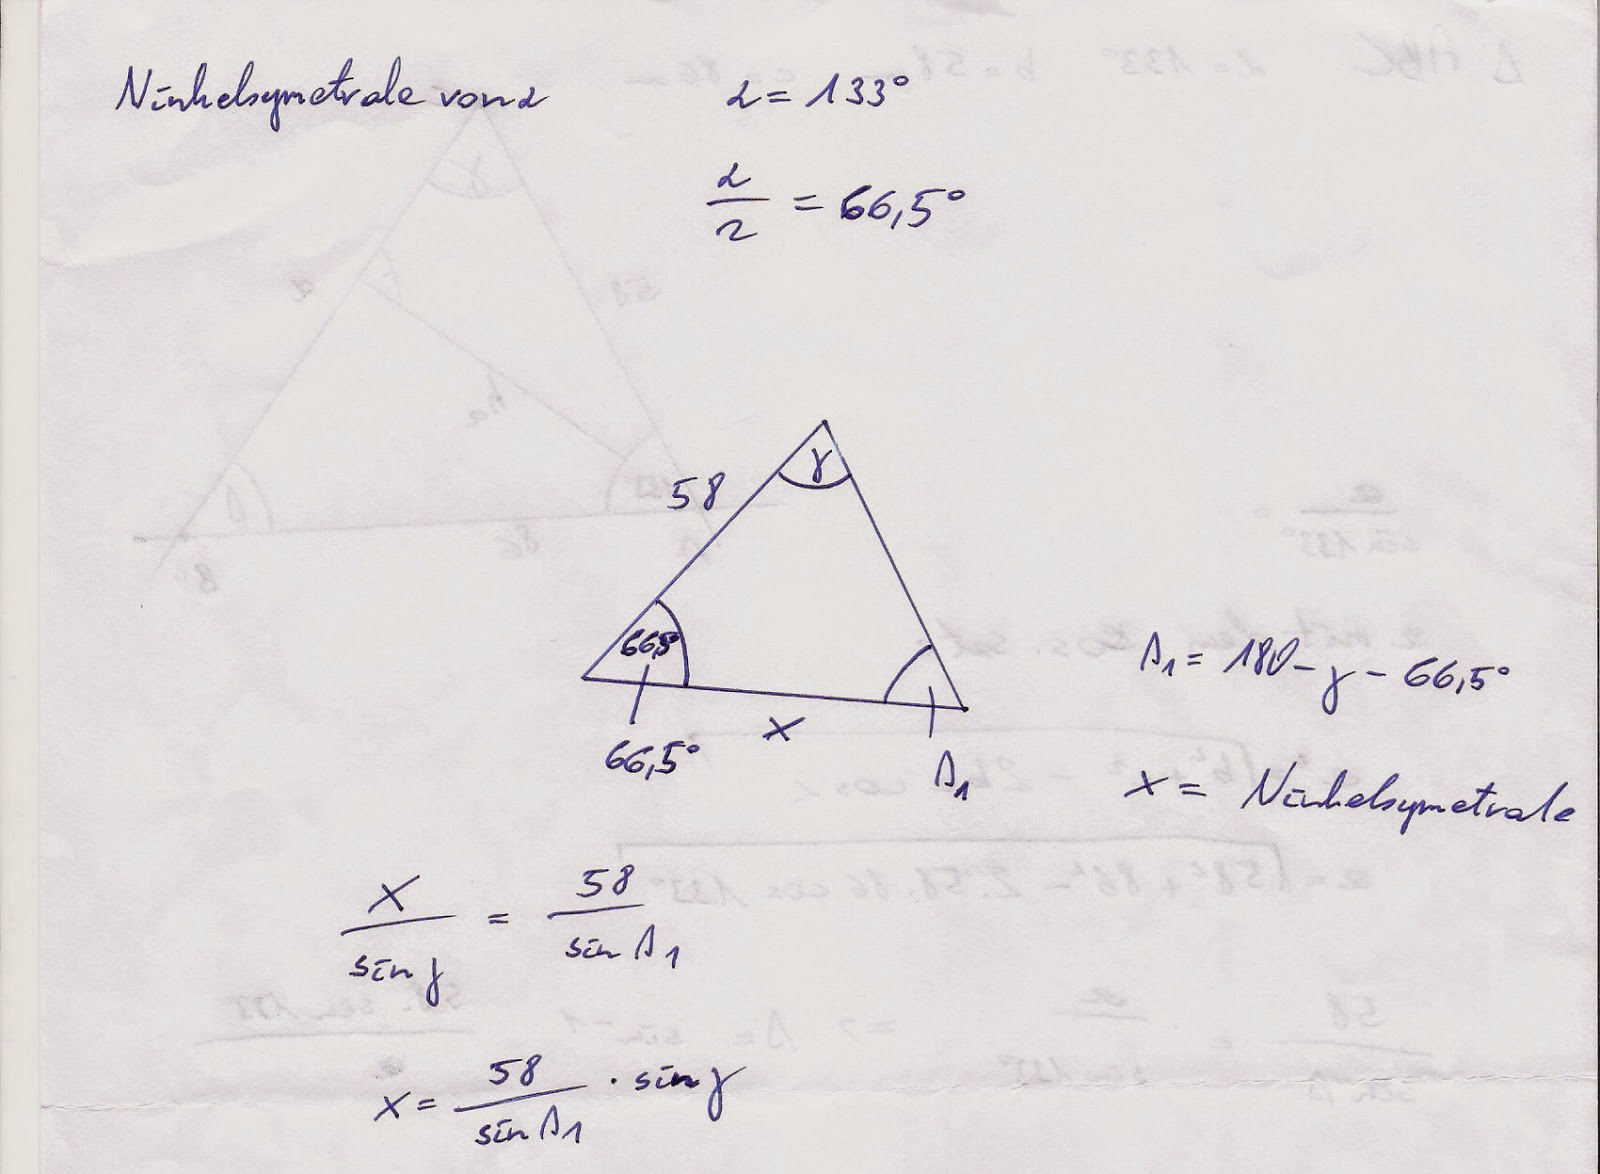 Winkelsymetrale von α
α = 133°
α/2 = 66,5°
58
γ
66,5
66,5°
x
β₁
β₁ = 180 - γ - 66,5°
x = Winkelsymetrale
x/sin γ = 58/sin β₁
x = 58/sin β₁ · sin γ